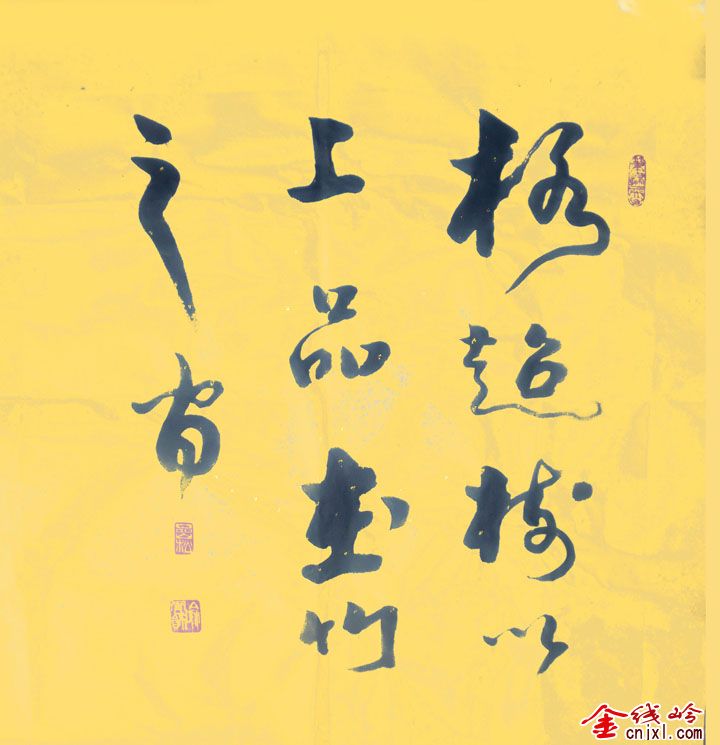 格超梅以
上品在竹
之間
金线岭
cnjxl.com